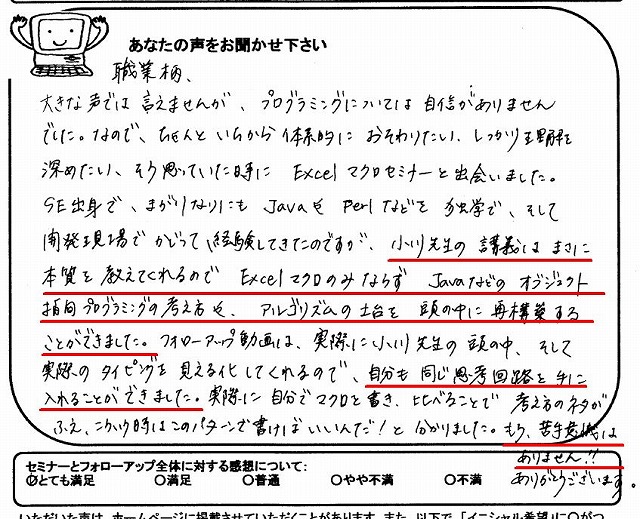 あなたの声をお聞かせ下さい
職業柄、
大きな声では言えませんが、プログラミングについては自信がありません
でした。なので、ちゃんといちから体系的におそわりたい、しっかり理解を
深めたい、そう思っていた時に Excelマクロセミナーと出会いました。
SE出身で、まがりなりにも JavaやPerlなどを独学で、そして
開発現場でかじって経験してきたのですが、小川先生の講義はまさに
本質を教えてくれるので Excelマクロのみならず Javaなどのオブジェクト
指向プログラミングの考え方や、アルゴリズムの土台を頭の中に再構築する
ことができました。フォローアップ動画は、実際に小川先生の頭の中、そして
実際のタイピングを見える化してくれるので、自分も同じ思考回路を手に
入れることができました。実際に自分でマクロを書き、比べることで考え方のネタが
ふえ、こういう時はこのパターンで書けばいいんだ！と分かりました。もう、苦手意識は
ありません!!
ありがとうございます。
セミナーとフォローアップ全体に対する感想について：
○とても満足 ○満足 ○普通 ○やや不満 ○不満
いただいた声は、ホームページに掲載させていただくことがあります。また、以下で「イニシャル希望」に○がつ